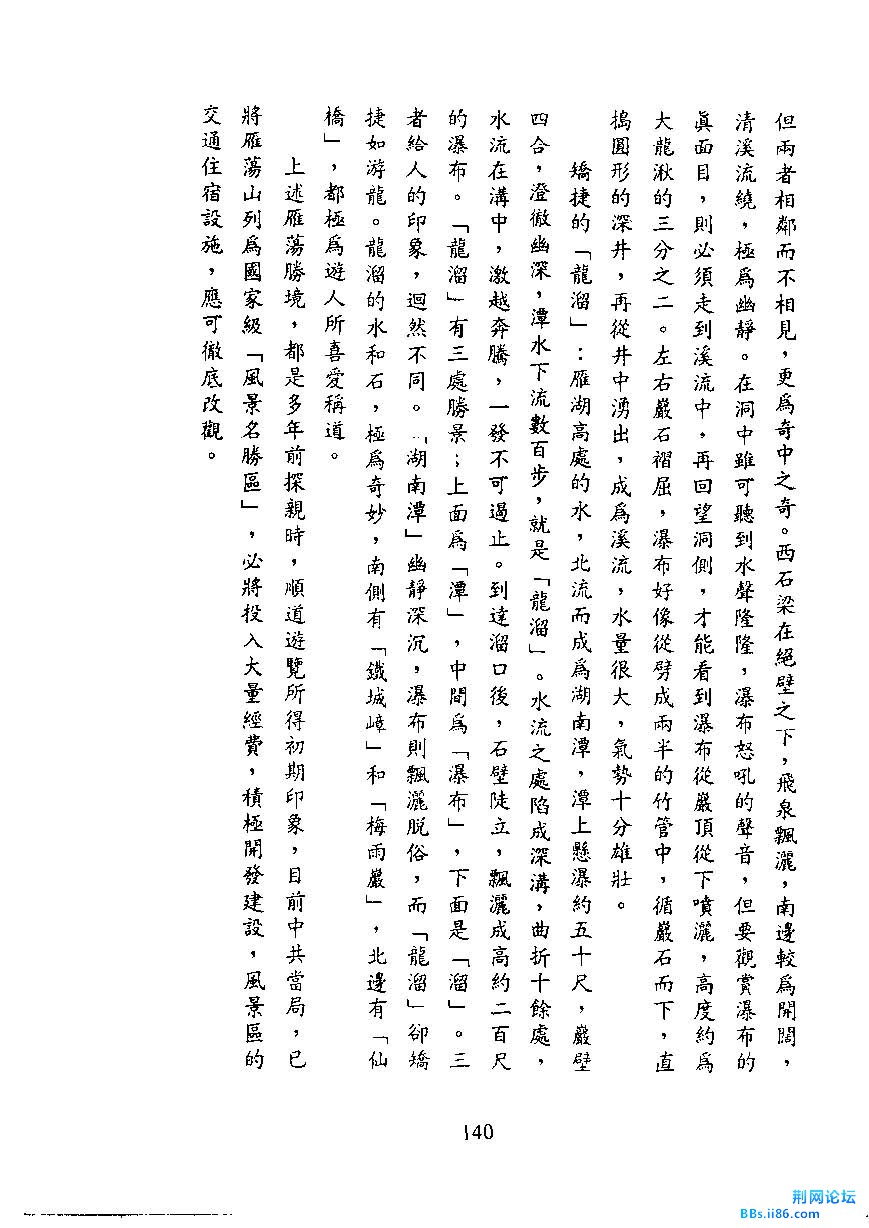 但兩者相鄰而不相見，更爲奇中之奇。西石梁在絕壁之下，飛泉飄灑，南邊較爲開闊，
清溪流繞，極爲幽靜。在洞中雖可聽到水聲隆隆，瀑布怒吼的聲音，但要觀賞瀑布的
眞面目，則必須走到溪流中，再回望洞側，才能看到瀑布從巖頂從下噴灑，高度約爲
大龍湫的三分之二。左右巖石褶屈，瀑布好像從劈成兩半的竹管中，循巖石而下，直
搗圓形的深井，再從井中湧出，成爲溪流，水量很大，氣勢十分雄壯。
矯捷的「龍溜」：雁湖高處的水，北流而成爲湖南潭，潭上懸瀑約五十尺，巖壁
四合，澄徹幽深，潭水下流數百步，就是「龍溜」。水流之處陷成深溝，曲折十餘處，
水流在溝中，激越奔騰，一發不可遏止。到達溜口後，石壁陡立，飄灑成高約二百尺
的瀑布。「龍溜」有三處勝景；上面爲「潭」，中間爲「瀑布」，下面是「溜」。三
者給人的印象，迴然不同。「湖南潭」幽靜深沉，瀑布則飄灑脫俗，而「龍溜」卻矯
捷如游龍。龍溜的水和石，極爲奇妙，南側有「鐵城嶂」和「梅雨巖」，北邊有「仙
橋」，都極爲遊人所喜愛稱道。
上述雁蕩勝境，都是多年前探親時，順道遊覽所得初期印象，目前中共當局，已
將雁蕩山列爲國家級「風景名勝區」，必將投入大量經費，積極開發建設，風景區的
交通住宿設施，應可徹底改觀。
140
荆网论坛
BBs.ii86.com